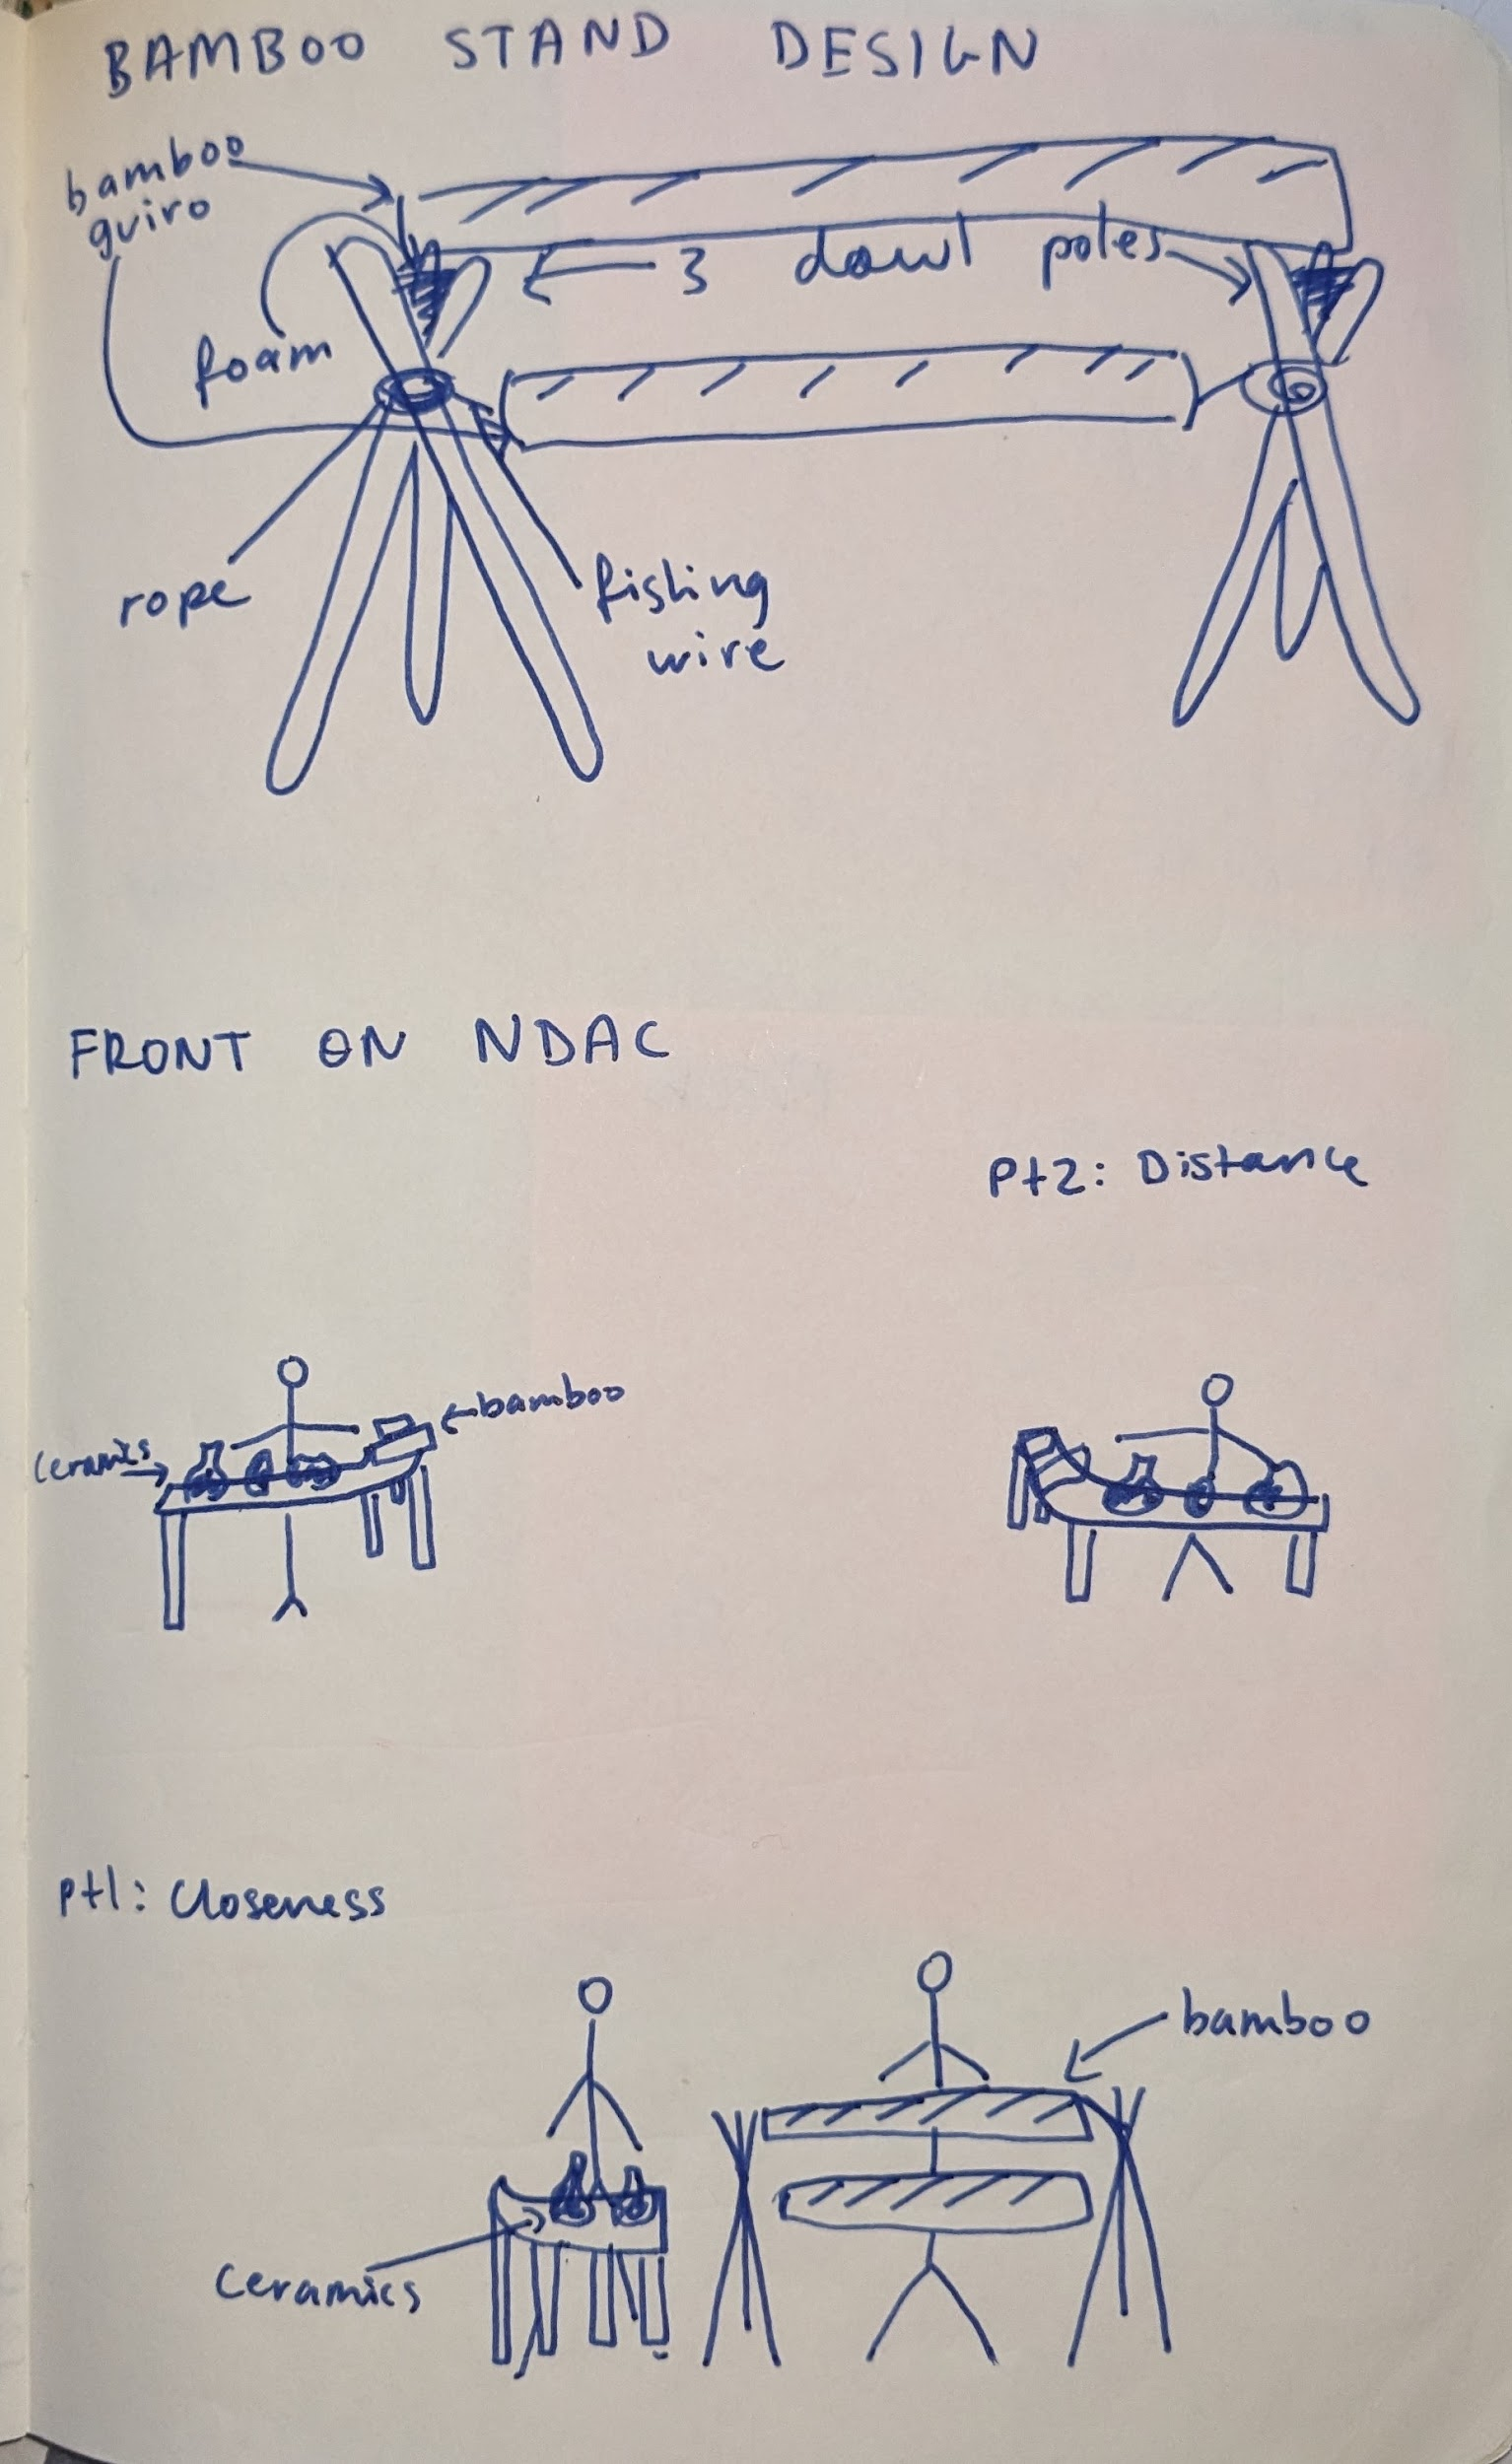 BAMBOO STAND DESIGN
bamboo
guiro
3 dowl poles
foam
rope
fishing
wire
FRONT ON NDAC
Pt2: Distance
bamboo
ceramics
Pt1: Closeness
bamboo
ceramics